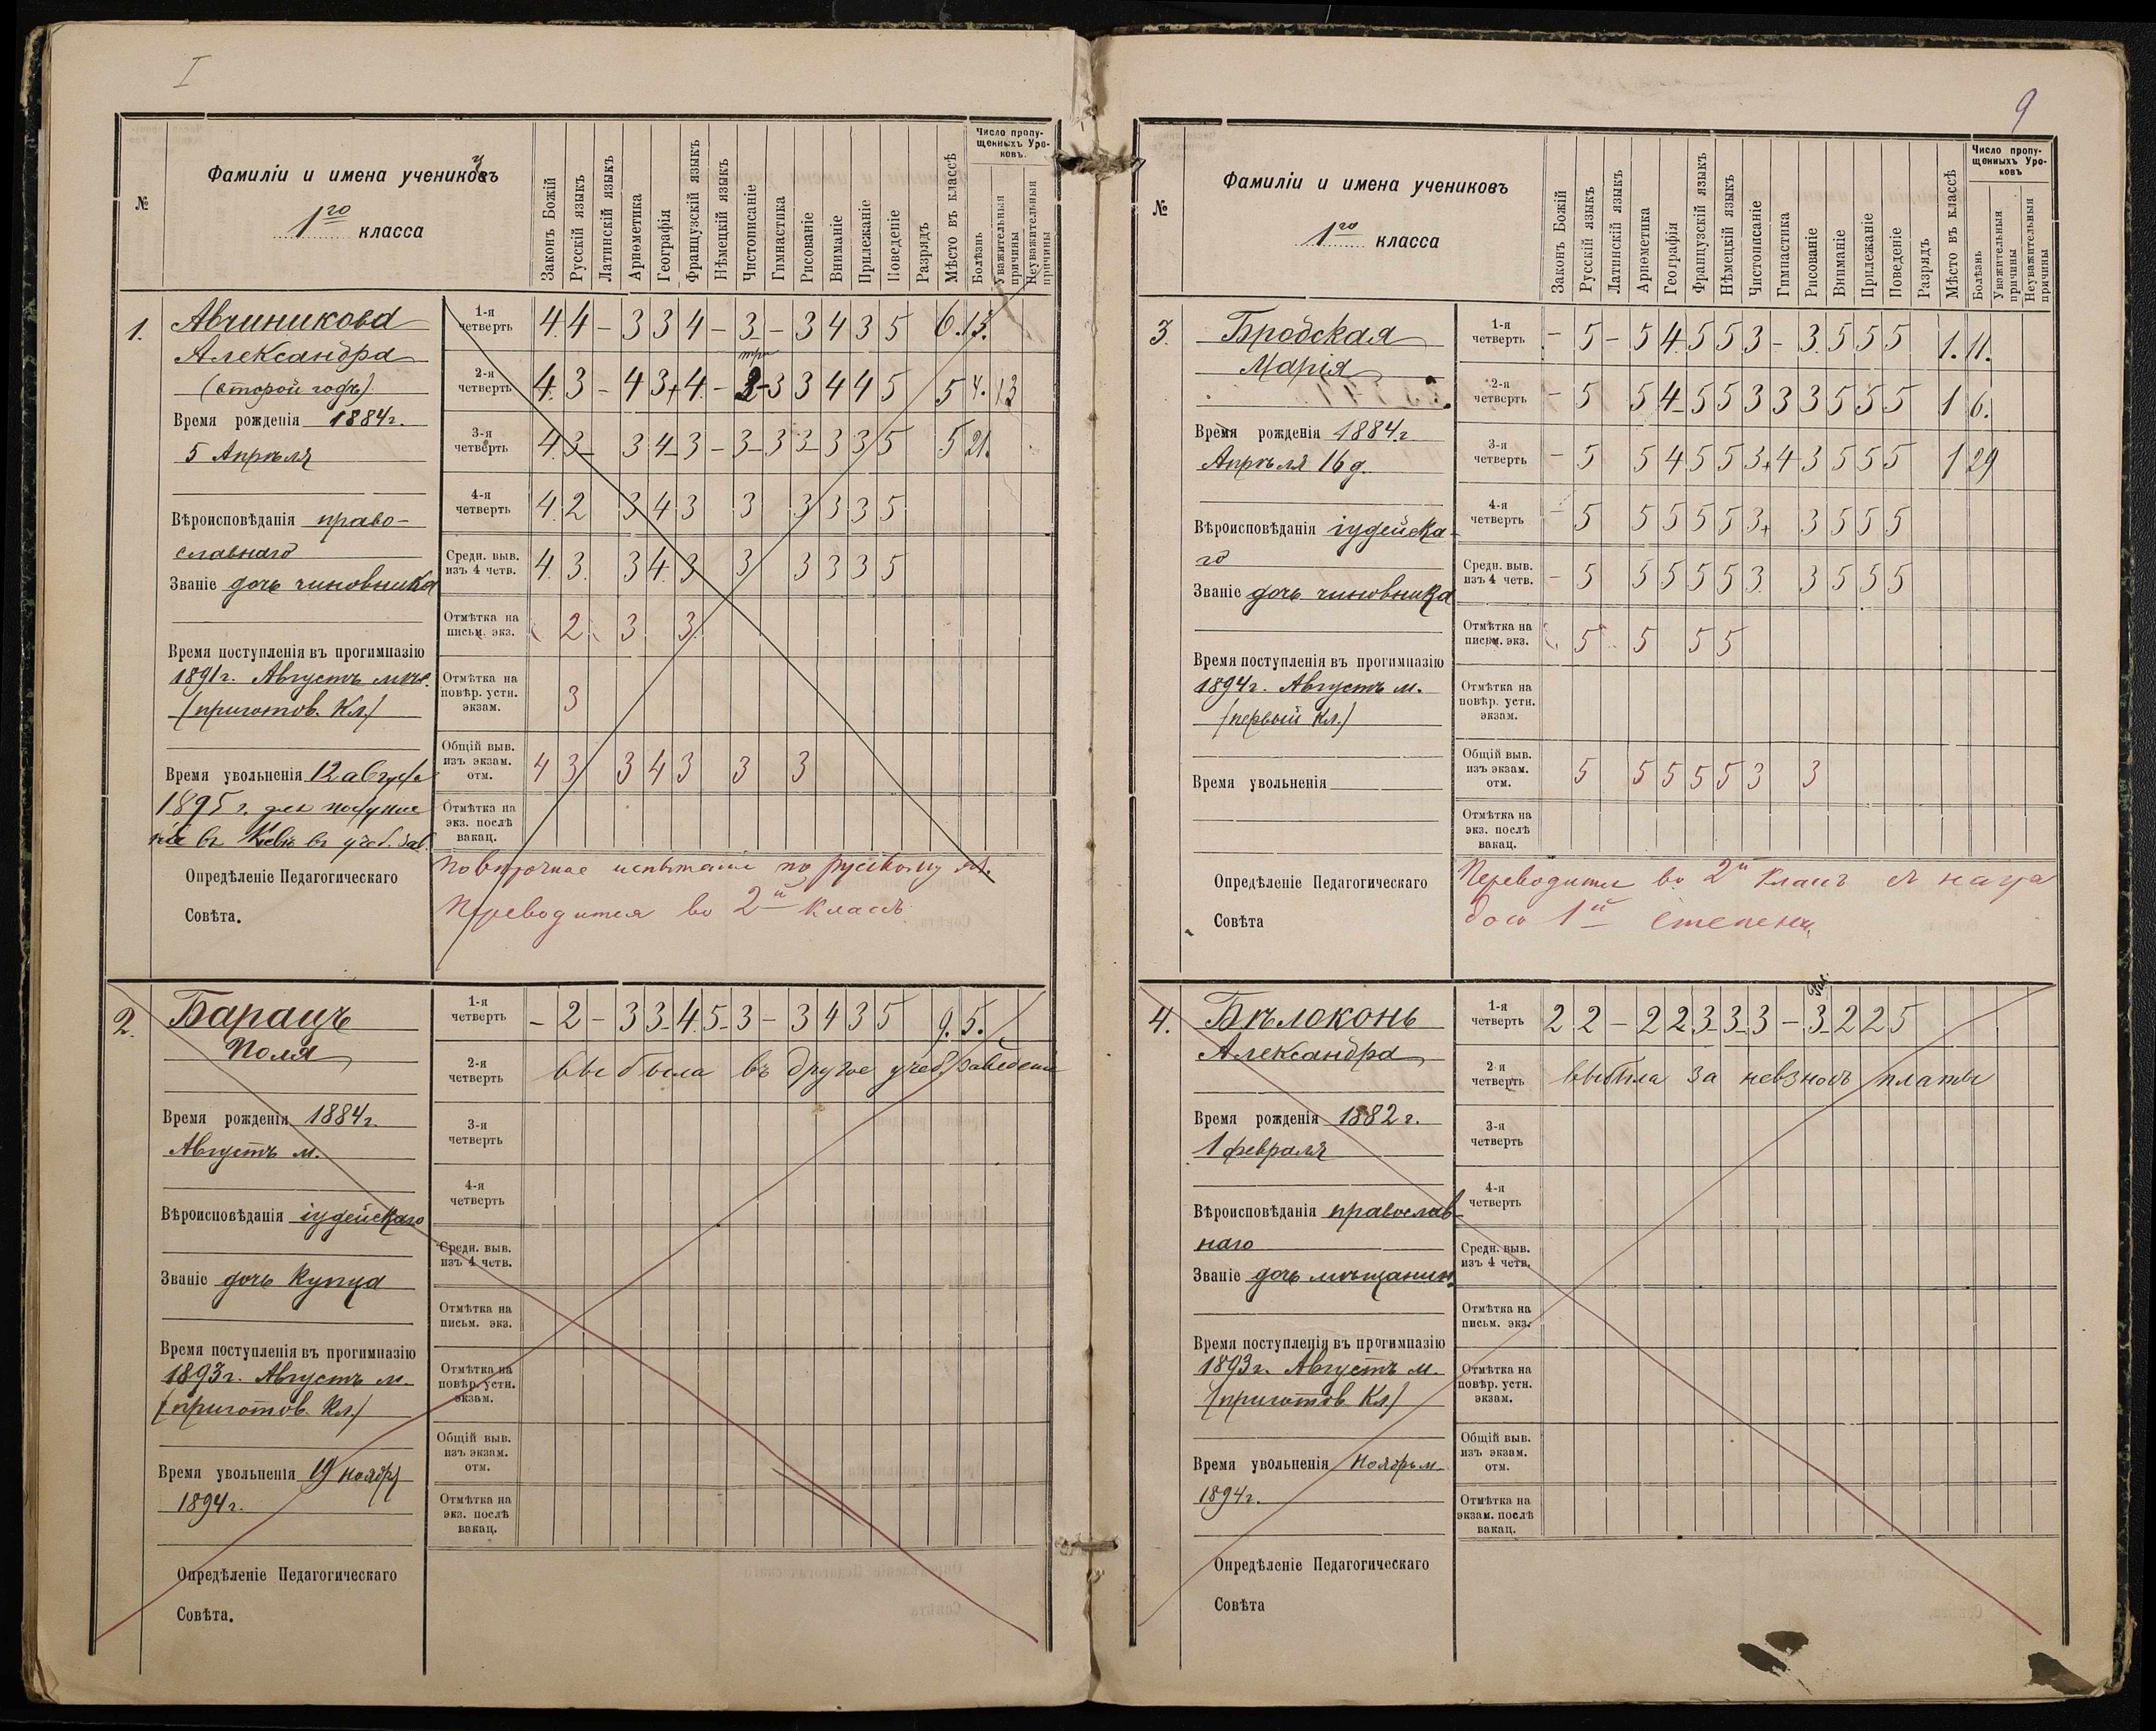 I
№
Фамиліи и имена учениковъ
1го класса
Законъ Божій
Русскій языкъ
Латинскій языкъ
Ариѳметика
Географія
Французскій языкъ
Нѣмецкій языкъ
Чистописаніе
Гимнастика
Рисованіе
Вниманіе
Прилежаніе
Поведеніе
Разрядъ
Мѣсто въ классѣ
Число пропущенныхъ Уроковъ.
Болѣзнь
Уважительныя причины
Неуважительныя причины
1.
Авчиникова
Александра
(второй годъ)
Время рожденія 1884г.
5 Апрѣля
Вѣроисповѣданія право-
славнаго
Званіе дочь чиновника
Время поступленія въ прогимназію
1891г. Августъ мѣс.
(приготов. Кл.)
Время увольненія 12 августа
1895 г. для поступле
нія въ Кіевѣ въ учеб. зав.
Опредѣленіе Педагогическаго
Совѣта.
1-я четверть 4 4 – 3 3 4 – 3 – 3 4 3 5 6. 15.
три
2-я четверть 4 3 – 4 3+ 4 – 3 – 3 3 4 4 5 5 4. 13
3-я четверть 4 3 – 3 4 3 – 3 – 3 3 – 3 3 5 5 21.
4-я четверть 4 2 3 4 3 3 3 3 3 5
Средн. выв. изъ 4 четв. 4 3 3 4 3 3 3 3 3 5
Отмѣтка на письм. экз. 2 3 3
Отмѣтка на повѣр. устн. экзам. 3
Общій выв. изъ экзам. отм. 4 3 3 4 3 3 3
Отмѣтка на экз. послѣ вакац.
Повѣрочное испытаніе по русскому яз.
Переводится во 2й классъ
2.
Барацъ
Поля
Время рожденія 1884г.
Августъ м.
Вѣроисповѣданія іудейскаго
Званіе дочь Купца
Время поступленія въ прогимназію
1893г. Августъ м.
(приготов. Кл.)
Время увольненія 19 ноября
1894г.
Опредѣленіе Педагогическаго
Совѣта.
1-я четверть – 2 – 3 3 4 5 3 – 3 4 3 5 9. 5.
2-я четверть выбыла въ другое учеб. заведеніе
3-я четверть
4-я четверть
Средн. выв. изъ 4 четв.
Отмѣтка на письм. экз.
Отмѣтка на повѣр. устн. экзам.
Общій выв. изъ экзам. отм.
Отмѣтка на экз. послѣ вакац.
9
№
Фамиліи и имена учениковъ
1го класса
Законъ Божій
Русскій языкъ
Латинскій языкъ
Ариѳметика
Географія
Французскій языкъ
Нѣмецкій языкъ
Чистописаніе
Гимнастика
Рисованіе
Вниманіе
Прилежаніе
Поведеніе
Разрядъ
Мѣсто въ классѣ
Число пропущенныхъ Уроковъ
Болѣзнь
Уважительныя причины
Неуважительныя причины
3.
Бродская
Марія
Время рожденія 1884.г
Апрѣля 16 д.
Вѣроисповѣданія іудейска-
го
Званіе дочь чиновника
Время поступленія въ прогимназію
1894г. Августъ м.
(первый Кл.)
Время увольненія
Опредѣленіе Педагогическаго
Совѣта
1-я четверть – 5 – 5 4 5 5 3 – 3 5 5 5 1. 11.
2-я четверть – 5 5 4 5 5 3 3 3 5 5 5 1 6.
3-я четверть – 5 5 4 5 5 3+ 4 3 5 5 5 1 29
4-я четверть – 5 5 5 5 5 3+ 3 5 5 5
Средн. выв. изъ 4 четв. – 5 5 5 5 5 3 3 5 5 5
Отмѣтка на письм. экз. 5 5 5 5
Отмѣтка на повѣр. устн. экзам.
Общій выв. изъ экзам. отм. 5 5 5 5 5 3 3
Отмѣтка на экз. послѣ вакац.
Переводится во 2й классъ съ награ
дою 1й степени
4.
Бѣлоконь
Александра
Время рожденія 1882 г.
1 февраля
Вѣроисповѣданія православ-
наго
Званіе дочь мѣщанин.
Время поступленія въ прогимназію
1893г. Августъ м.
(приготов Кл)
Время увольненія Ноябрь м
1894г.
Опредѣленіе Педагогическаго
Совѣта
1-я четверть 2 2 – 2 2 3 3 3 – 3 2 2 5
2 я четверть выбыла за невзносъ платы
3-я четверть
4-я четверть
Средн. выв. изъ 4 четв.
Отмѣтка на письм. экз.
Отмѣтка на повѣр. устн. экзам.
Общій выв. изъ экзам. отм.
Отмѣтка на экзам. послѣ вакац.